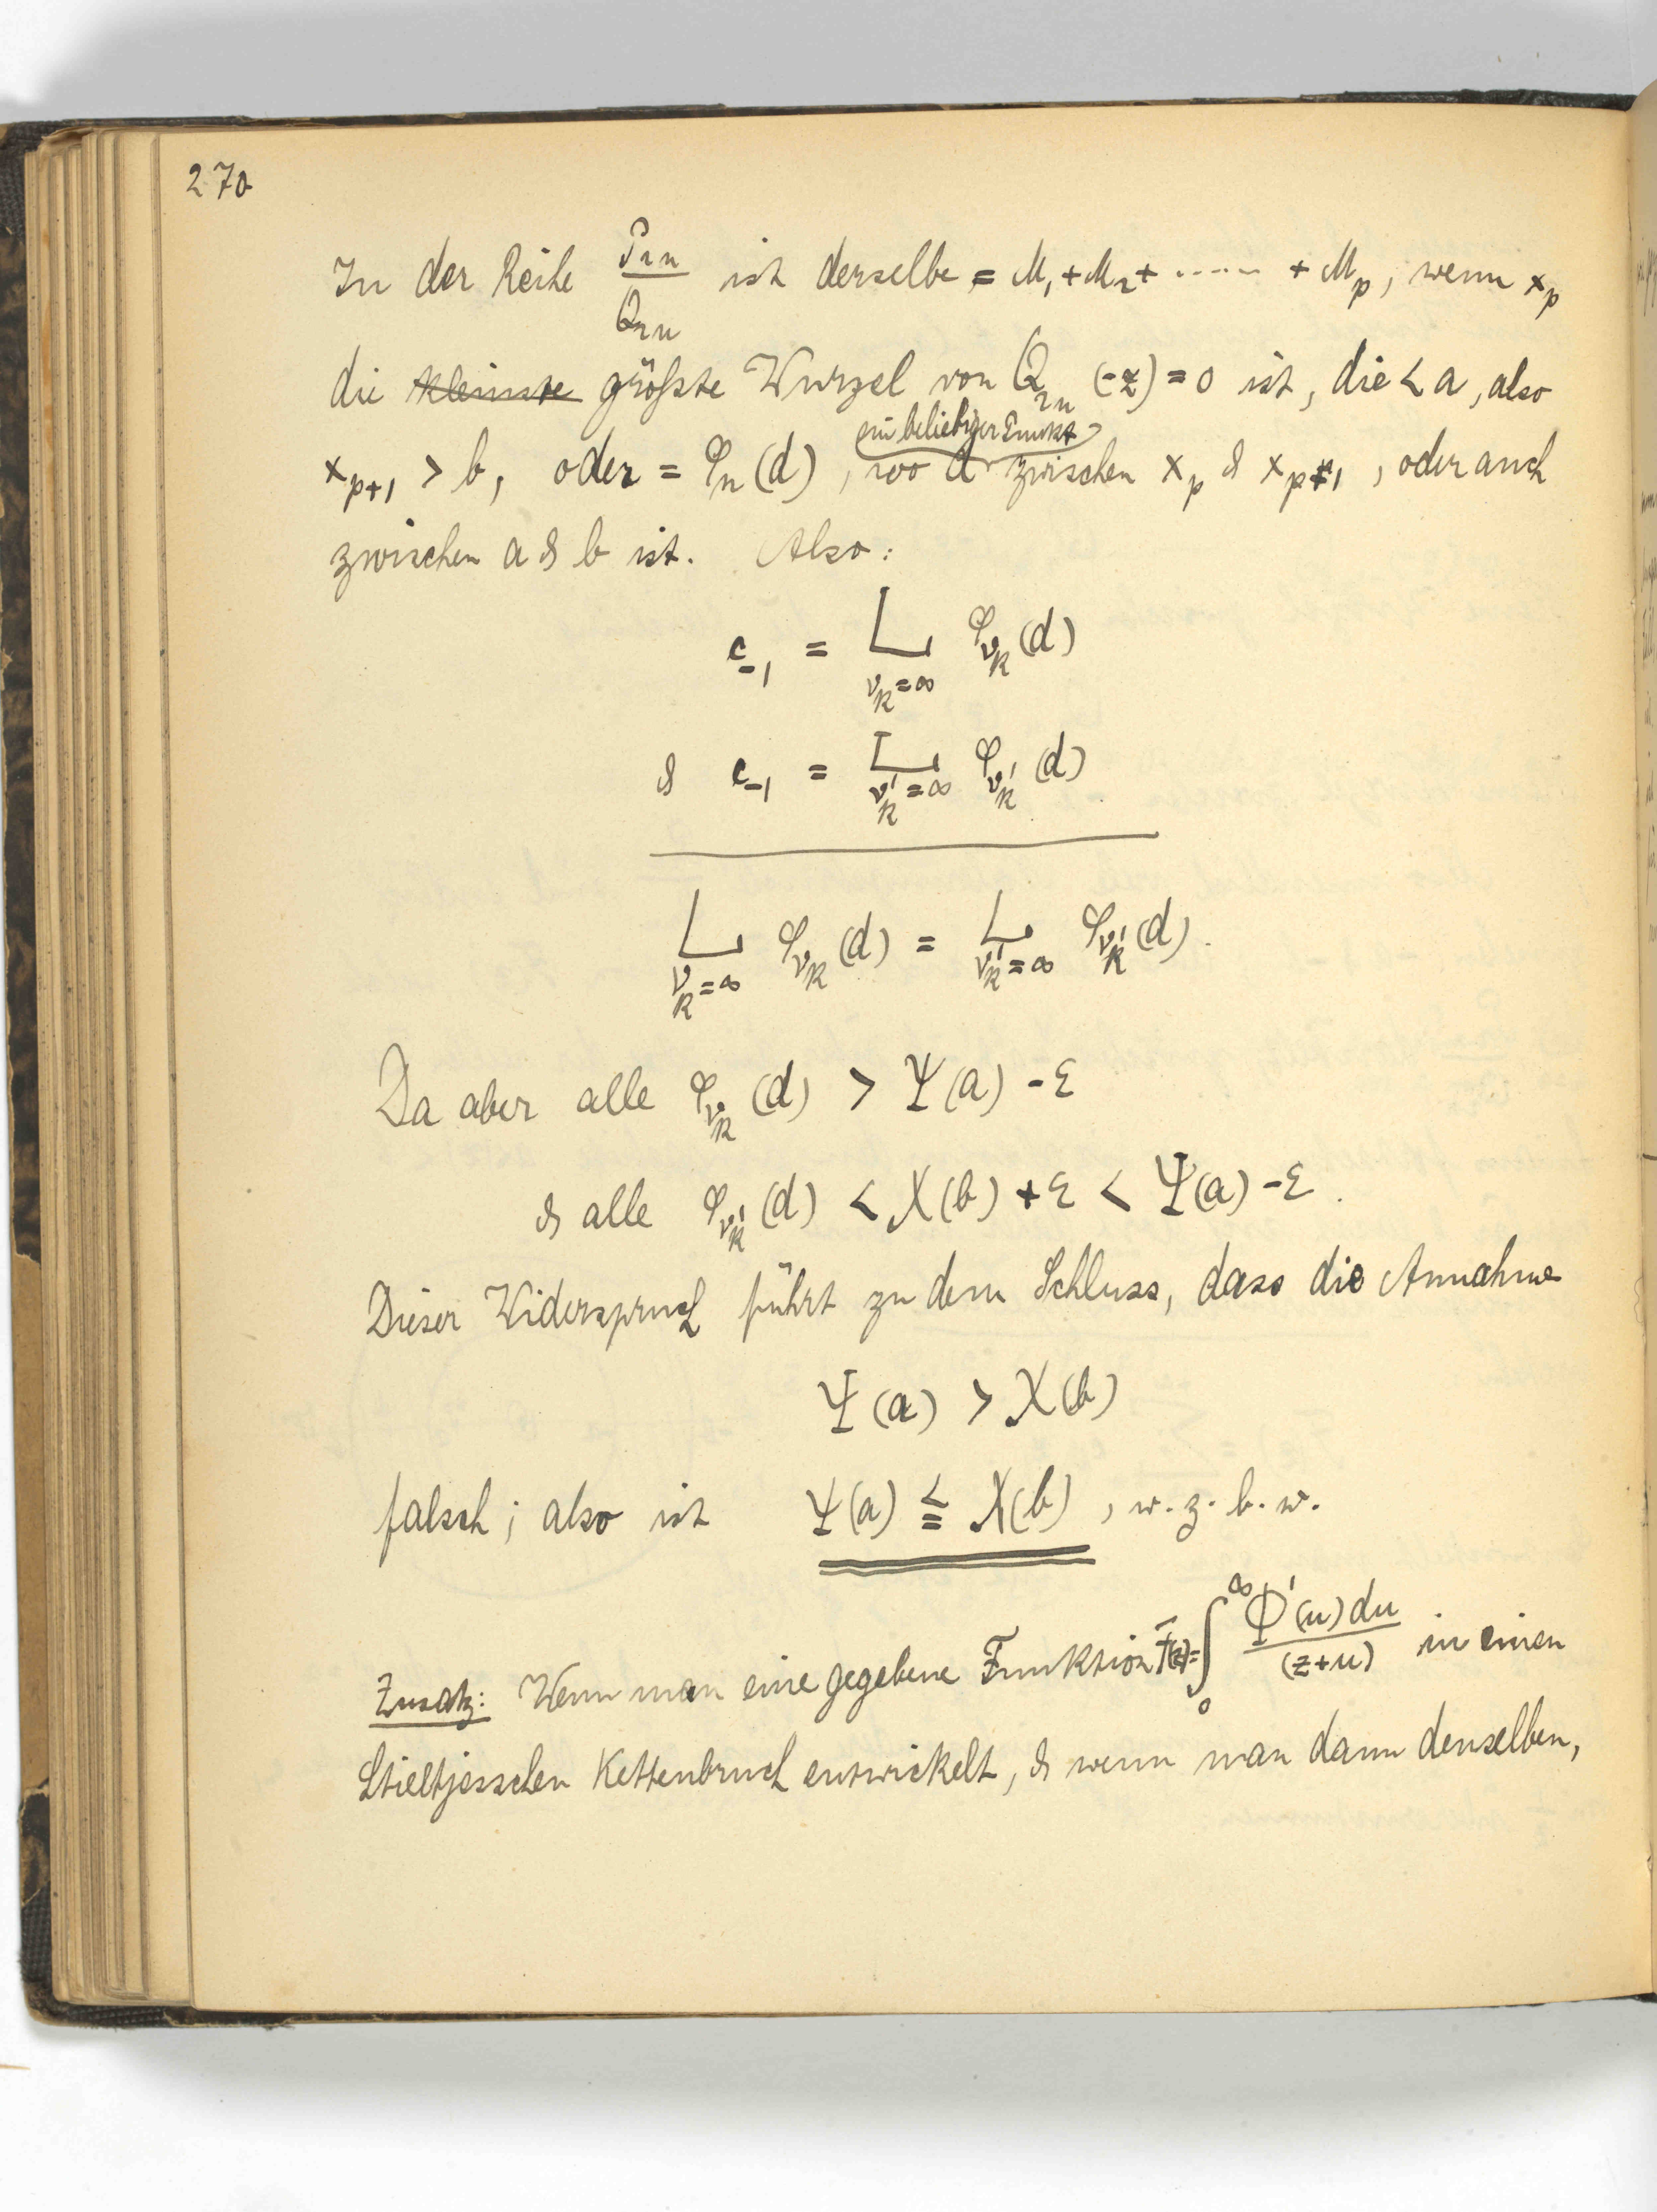 270
In der Reihe P₂ₙ/Q₂ₙ ist derselbe = M₁ + M₂ + ..... + Mₚ, wenn xₚ
die kleinste größte Wurzel von Q₂ₙ (-z) = 0 ist, die < a, also
ein beliebiger Punkt
xₚ₊₁ > b, oder = φₙ(d), wo d zwischen xₚ & xₚ₊₁, oder auch
zwischen a & b ist. Also:
c₋₁ = L_{ν_k=∞} φ_{ν_k}(d)
& c₋₁ = L_{ν'_k=∞} φ_{ν'_k}(d)
L_{ν_k=∞} φ_{ν_k}(d) = L_{ν'_k=∞} φ_{ν'_k}(d).
Da aber alle φ_{ν_k}(d) > Ψ(a) - ε
& alle φ_{ν'_k}(d) < X(b) + ε < Ψ(a) - ε.
Dieser Widerspruch führt zu dem Schluss, dass die Annahme
Ψ(a) > X(b)
falsch; also ist Ψ(a) ≦ X(b), w. z. b. w.
Zusatz: Wenn man eine gegebene Funktion F(z) = ∫₀^∞ Φ'(u)du/(z+u) in einen
Stieltjesschen Kettenbruch entwickelt, & wenn man dann denselben,